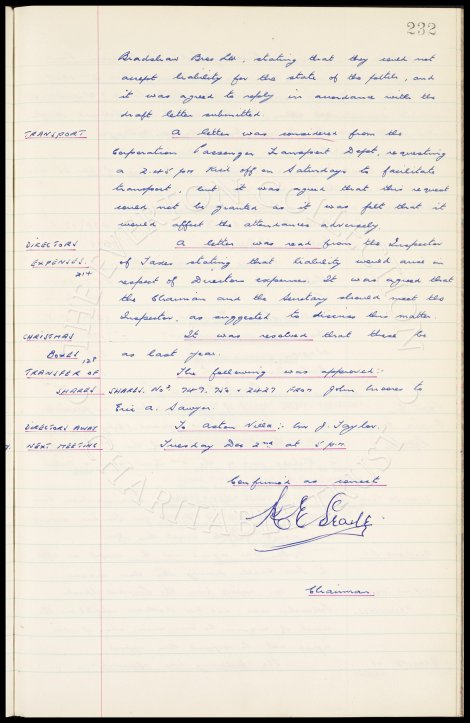 232
Bradshaw Bros Ltd, stating that they could not
accept liability for the state of the pitch, and
it was agreed to reply in accordance with the
draft letter submitted
TRANSPORT A letter was considered from the
Corporation Passenger Transport Dept. requesting
a 2.45 pm Kick off on Saturdays to facilitate
transport, but it was agreed that this request
could not be granted as it was felt that it
would affect the attendances adversely.
DIRECTORS A letter was read from the Inspector
EXPENSES. of Taxes stating that liability would arise in
214 respect of Directors expenses. It was agreed that
the Chairman and the Secretary should meet the
Inspector, as suggested to discuss this matter.
CHRISTMAS It was resolved that these be
BOXES 128 as last year.
TRANSFER OF The following was approved:
SHARES SHARES. Nos 747. 748 & 2427 FROM John Moores to
Eric A. Sawyer.
DIRECTORS AWAY To Aston Villa: Mr J. Taylor.
NEXT MEETING Tuesday Dec 2nd at 5 pm.
Confirmed as correct
Chairman
THE EVERTON
CHARITABLE TRUST